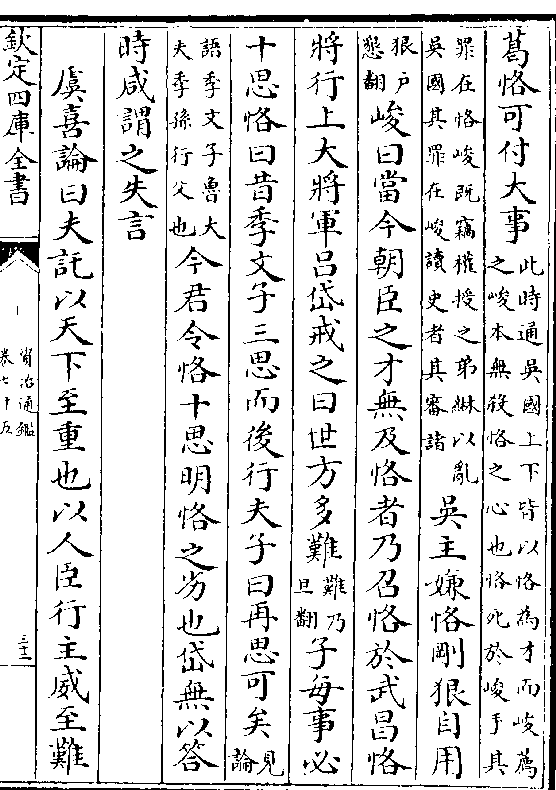 葛恪可付大事
此時通吳國上下皆以恪為才而峻薦
之峻本無殺恪之心也恪死於峻手其
罪在恪峻既竊權授之弟綝以亂
吳國其罪在峻讀史者其審諸
吳主嫌恪剛狠自用
狠户
懇翻
峻曰當今朝臣之才無及恪者乃召恪於武昌恪
將行上大將軍呂岱戒之曰世方多難
難乃
旦翻
子每事必
十思恪曰昔季文子三思而後行夫子曰再思可矣
見
論
語季文子魯大
夫季孫行父也
今君令恪十思明恪之劣也岱無以答
時咸謂之失言
虞喜論曰夫託以天下至重也以人臣行主威至難
欽定四庫全書
資治通鑑
卷七十五